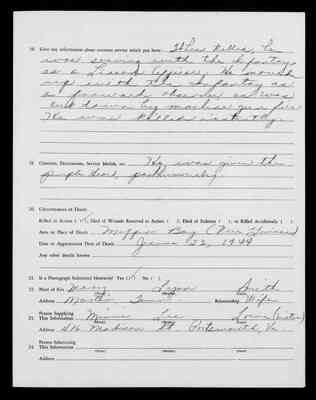 18. Give any information about overseas service which you have: When Killed, he
was serving with the infantry
as a Liaison Officer. He moved
up with the infantry as
a forward observer and was
cut down by machine gun fire
He was killed instantly.
19. Citations, Decorations, Service Medals, etc. He was given the
purple heart, posthumously.
20. Circumstances of Death:
Killed in Action (✓), Died of Wounds Received in Action ( ), Died of Sickness ( ), or Killed Accidentally ( )
Area or Place of Death Bay (New
Date or Approximate Date of Death June 22, 1944
Any other details known
21. Is a Photograph Submitted Herewith? Yes (✓) No ( )
22. Next of Kin Mary Smith
Address Relationship Wife
23. Person Supplying This Information Minnie Lee (sister)
Address Madison St. Portsmouth, Va.
24. Person Submitting This Information
(First) (Middle) (Last)
Address